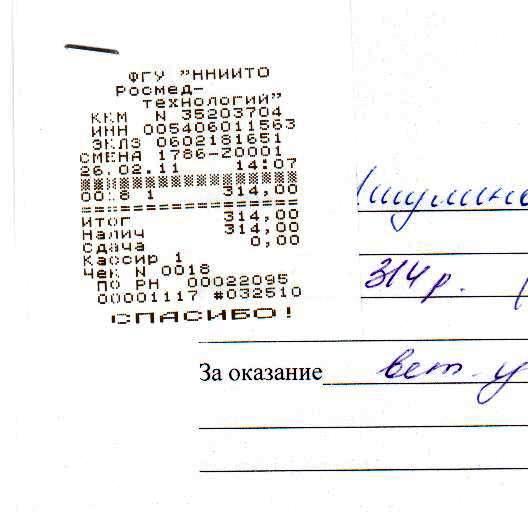 ФГУ "ННИИТО
Росмед-
технологий"
ККМ N 35203704
ИНН 005406011563
ЭКЛЗ 0602181651
СМЕНА 1786-Z0001
26.02.11 14:07
0028 1 314,00
Итог 314,00
Налич 314,00
Сдача 0,00
Кассир 1
Чек N 0018
ПО РН 00022095
00001117 #032510
СПАСИБО!
314 р. (
За оказание вет. у